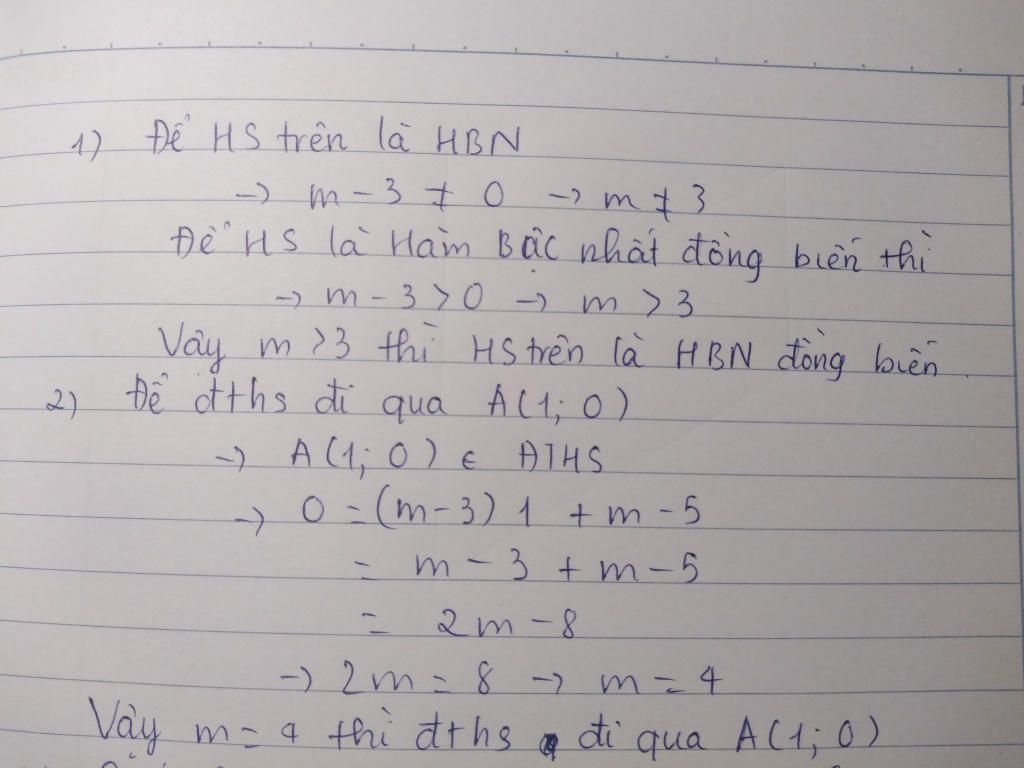 1) Để HS trên là HBN
→ m - 3 ≠ 0 → m ≠ 3
Để HS là Hàm Bậc nhất đồng biến thì
→ m - 3 > 0 → m > 3
Vậy m > 3 thì HS trên là HBN đồng biến.
2) Để đths đi qua A(1; 0)
→ A(1; 0) ∈ ĐTHS
→ 0 = (m-3) 1 + m - 5
= m - 3 + m - 5
= 2m - 8
→ 2m = 8 → m = 4
Vậy m = 4 thì đths đi qua A(1; 0)